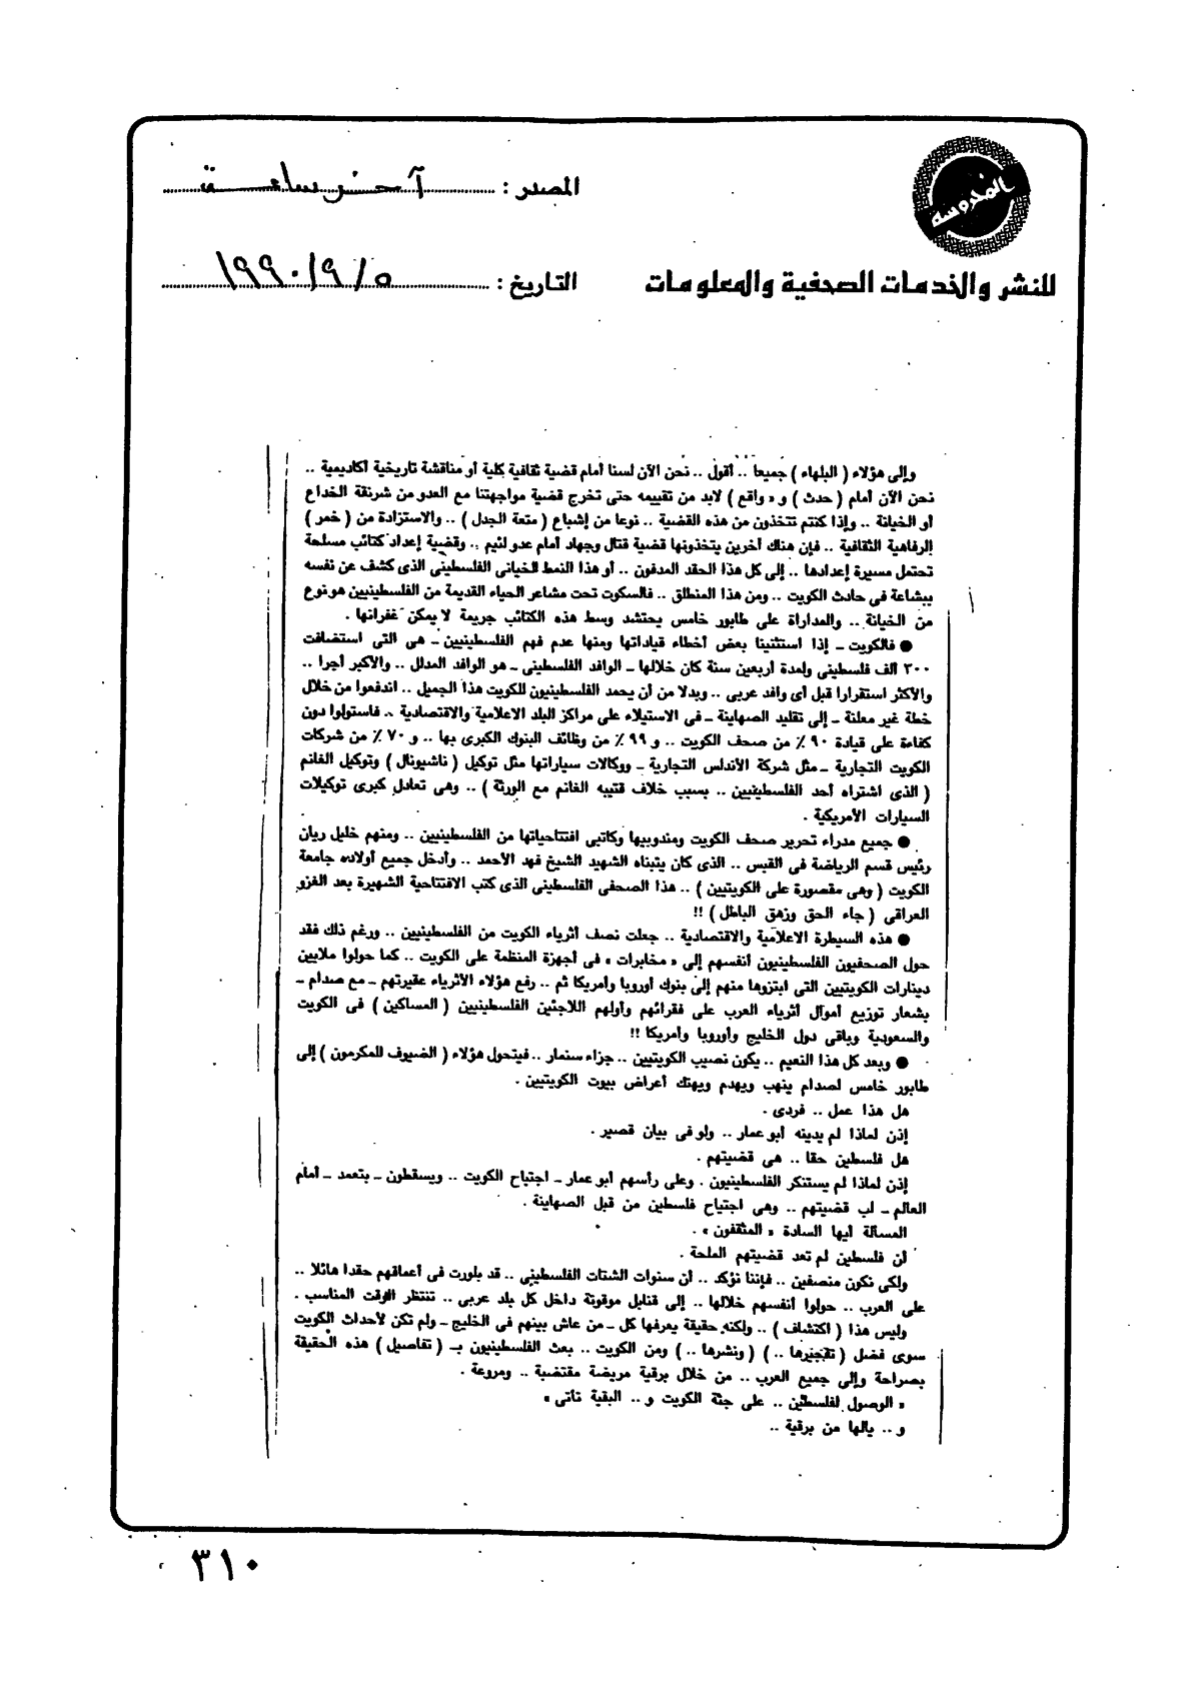 المحروسة
المصدر : آخر ساعة
للنشر والخدمات الصحفية والمعلومات
التاريخ : ١٩٩٠/٩/٥
وإلى هؤلاء ( البلهاء ) جميعا .. أقول .. نحن الآن لسنا أمام قضية ثقافية كلية أو مناقشة تاريخية أكاديمية ..
نحن الآن أمام ( حدث ) و « واقع ) لابد من تقييمه حتى تخرج قضية مواجهتنا مع العدو من شرنقة الخداع
أو الخيانة .. وإذا كنتم تتخذون من هذه القضية .. نوعا من إشباع ( متعة الجدل ) .. والاستزادة من ( خمر )
الرفاهية الثقافية .. فإن هناك آخرين يتخذونها قضية قتال وجهاد أمام عدو لئيم .. وقضية إعداد كتائب مسلحة
تحتمل مسيرة إعدادها .. إلى كل هذا الحقد المدفون .. أو هذا النمط الخيانى الفلسطينى الذى كشف عن نفسه
ببشاعة فى حادث الكويت .. ومن هذا المنطلق .. فالسكوت تحت مشاعر الحياء القديمة من الفلسطينيين هو نوع
من الخيانة .. والمداراة على طابور خامس يحتشد وسط هذه الكتائب جريمة لا يمكن غفرانها .
● فالكويت ـ إذا استثنينا بعض أخطاء قياداتها ومنها عدم فهم الفلسطينيين ـ هى التى استضافت
٣٠٠ ألف فلسطينى ولمدة أربعين سنة كان خلالها ـ الوافد الفلسطينى ـ هو الوافد المدلل .. والأكبر أجرا ..
والأكثر استقرارا قبل أى وافد عربى .. وبدلا من أن يحمد الفلسطينيون للكويت هذا الجميل .. اندفعوا من خلال
خطة غير معلنة ـ إلى تقليد الصهاينة ـ فى الاستيلاء على مراكز البلد الاعلامية والاقتصادية .. فاستولوا دون
كفاءة على قيادة ٩٠ ٪ من صحف الكويت .. و ٩٩ ٪ من وظائف البنوك الكبرى بها .. و ٧٠ ٪ من شركات
الكويت التجارية ـ مثل شركة الأندلس التجارية ـ ووكالات سياراتها مثل توكيل ( ناشيونال ) وتوكيل الغانم
( الذى اشتراه أحد الفلسطينيين .. بسبب خلاف قتيبه الغانم مع الورثة ) .. وهى تعادل كبرى توكيلات
السيارات الأمريكية .
● جميع مدراء تحرير صحف الكويت ومندوبيها وكاتبى افتتاحياتها من الفلسطينيين .. ومنهم خليل ريان
رئيس قسم الرياضة فى القبس .. الذى كان يتبناه الشهيد الشيخ فهد الأحمد .. وأدخل جميع أولاده جامعة
الكويت ( وهى مقصورة على الكويتيين ) .. هذا الصحفى الفلسطينى الذى كتب الافتتاحية الشهيرة بعد الغزو
العراقى ( جاء الحق وزهق الباطل ) !!
● هذه السيطرة الاعلامية والاقتصادية .. جعلت نصف أثرياء الكويت من الفلسطينيين .. ورغم ذلك فقد
حول الصحفيون الفلسطينيون أنفسهم إلى « مخابرات » فى أجهزة المنظمة على الكويت .. كما حولوا ملايين
دينارات الكويتيين التى ابتزوها منهم إلى بنوك أوروبا وأمريكا ثم .. رفع هؤلاء الأثرياء عقيرتهم ـ مع صدام ـ
بشعار توزيع أموال أثرياء العرب على فقرائهم وأولهم اللاجئين الفلسطينيين ( المساكين ) فى الكويت
والسعودية وباقى دول الخليج وأوروبا وأمريكا !!
● وبعد كل هذا النعيم .. يكون نصيب الكويتيين .. جزاء سنمار .. فيتحول هؤلاء ( الضيوف المكرمون ) إلى
طابور خامس لصدام ينهب ويهدم ويهتك أعراض بيوت الكويتيين .
هل هذا عمل .. فردى .
إذن لماذا لم يدينه أبو عمار .. ولو فى بيان قصير .
هل فلسطين حقا .. هى قضيتهم .
إذن لماذا لم يستنكر الفلسطينيون . وعلى رأسهم أبو عمار ـ اجتياح الكويت .. ويسقطون ـ بتعمد ـ أمام
العالم ـ لب قضيتهم .. وهى اجتياح فلسطين من قبل الصهاينة .
المسألة أيها السادة « المثقفون » .
أن فلسطين لم تعد قضيتهم الملحة .
ولكى نكون منصفين .. فإننا نؤكد .. أن سنوات الشتات الفلسطينى .. قد بلورت فى أعماقهم حقدا هائلا ..
على العرب .. حولوا أنفسهم خلالها .. إلى قنابل موقوتة داخل كل بلد عربى .. تنتظر الوقت المناسب .
وليس هذا ( اكتشاف ) .. ولكنه حقيقة يعرفها كل ـ من عاش بينهم فى الخليج ـ ولم تكن لأحداث الكويت
سوى فضل ( تفجيرها .. ) ( ونشرها .. ) ومن الكويت .. بعث الفلسطينيون بـ ( تفاصيل ) هذه الحقيقة
بصراحة وإلى جميع العرب .. من خلال برقية مريضة مقتضبة .. ومروعة .
« الوصول لفلسطين .. على جثة الكويت و .. البقية تأتى »
و .. يالها من برقية ..
٣١٠